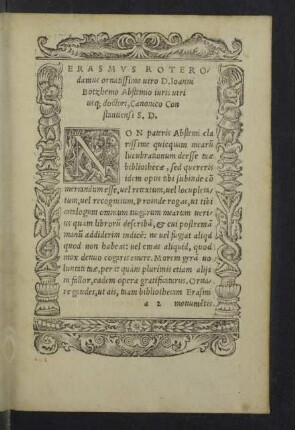 ERASMVS ROTERO/
damus ornatissimo uiro D. Ioanni
Botzhemo Abstemio iuris utri
usq; doctori, Canonico Con
stantiensi S. D.
NON pateris Abstemi cla
rissime quicquam mearũ
lucubrationum deesse tuæ
bibliothecæ, sed quereris
idem opus tibi subinde cõ
merandum esse, uel retextum, uel locuplena
tum, uel recognitum, Proinde rogas, ut tibi
catalogum omnium nugarum mearum uerti
us quam librorũ describã, & cui postremã
manũ addiderim indicẽ: ne uel fugiat aliqd
quod non habeas: uel emas aliquid, quod
mox denuo cogaris emere. Morem gerã uo
luntati tuæ, per te quàm plurimis etiam alijs
ni fallor, eadem opera gratificaturus. Orna
re gaudes, ut ais, tuam bibliothecam Erasmi
a 2 monumẽtis.